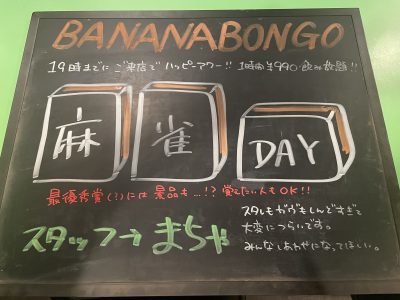 BANANABONGO
19時までにご来店でハッピーアワー!! 1時間¥990飲み放題!!
麻雀 DAY
最優秀賞(?)には景品も…!? 覚えたい人もOK!!
スタッフ→まちゃ
スタレもガヴもしんどすぎて
大変につらいです。
みんなしあわせになってほしい。